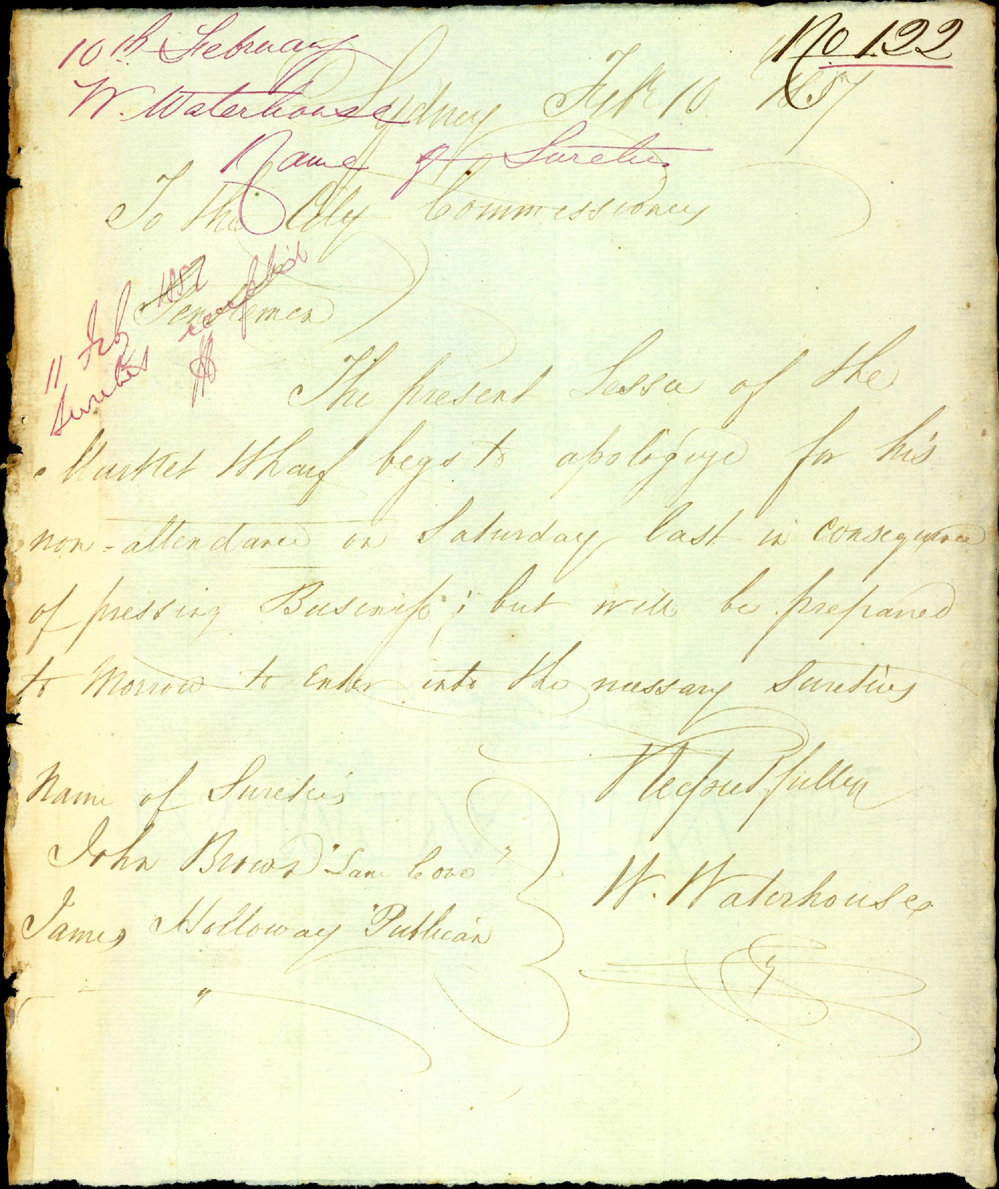 No 122
10th February
W. Waterhouse
Name of Sureties
Sydney Feb 10 1857
To the City Commissioners
11 Feb 1857
Sureties accepted
Gentlemen
The present Lessee of the
Market Wharf begs to apologize for his
non-attendance on Saturday last in consequence
of pressing Business; but will be prepared
to Morrow to Enter into the nessary Sureties
Respectfully
W. Waterhouse
Name of Sureties
John Brown "Lane Cove"
James Holloway "Publican"